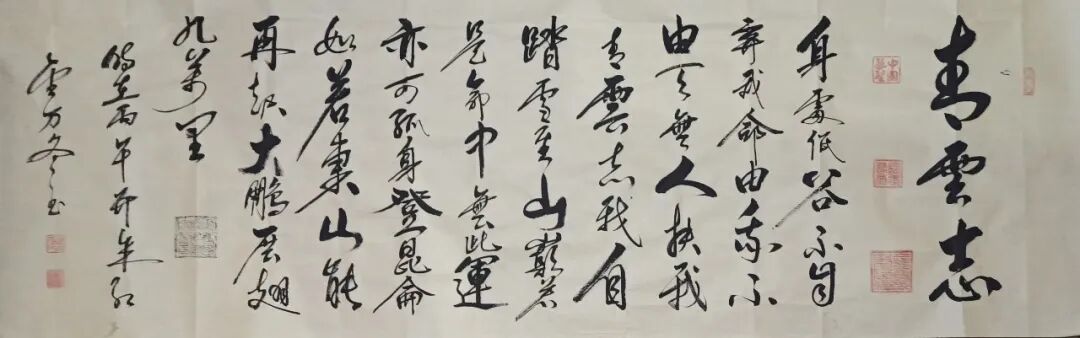 青雲志
身處低谷不自
棄我命由我不
由天無人扶我
青雲志我自
踏雪至山巔若
是命中無此運
亦可孤身登昆侖
如若東山能
再起大鵬展翅
九萬里
時在丙午